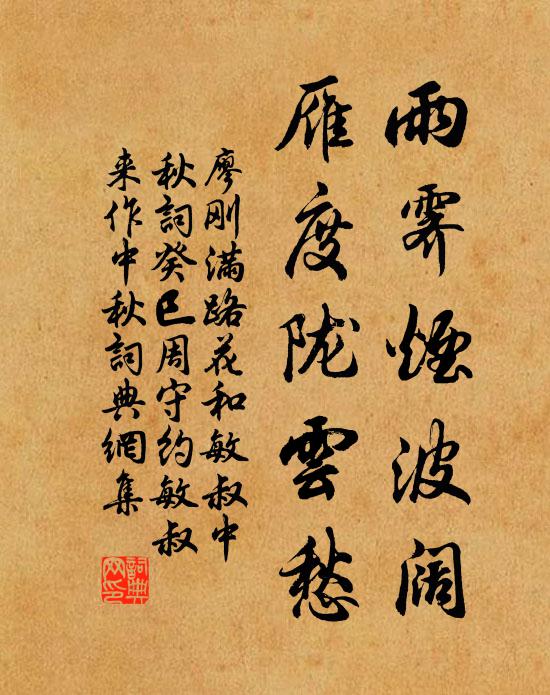 雨霁煙波阔
雁度陇雲愁
廖刚满路花和敏叔中
秋詞癸巳周守约敏叔
来作中秋詞典網集
詞典
网印